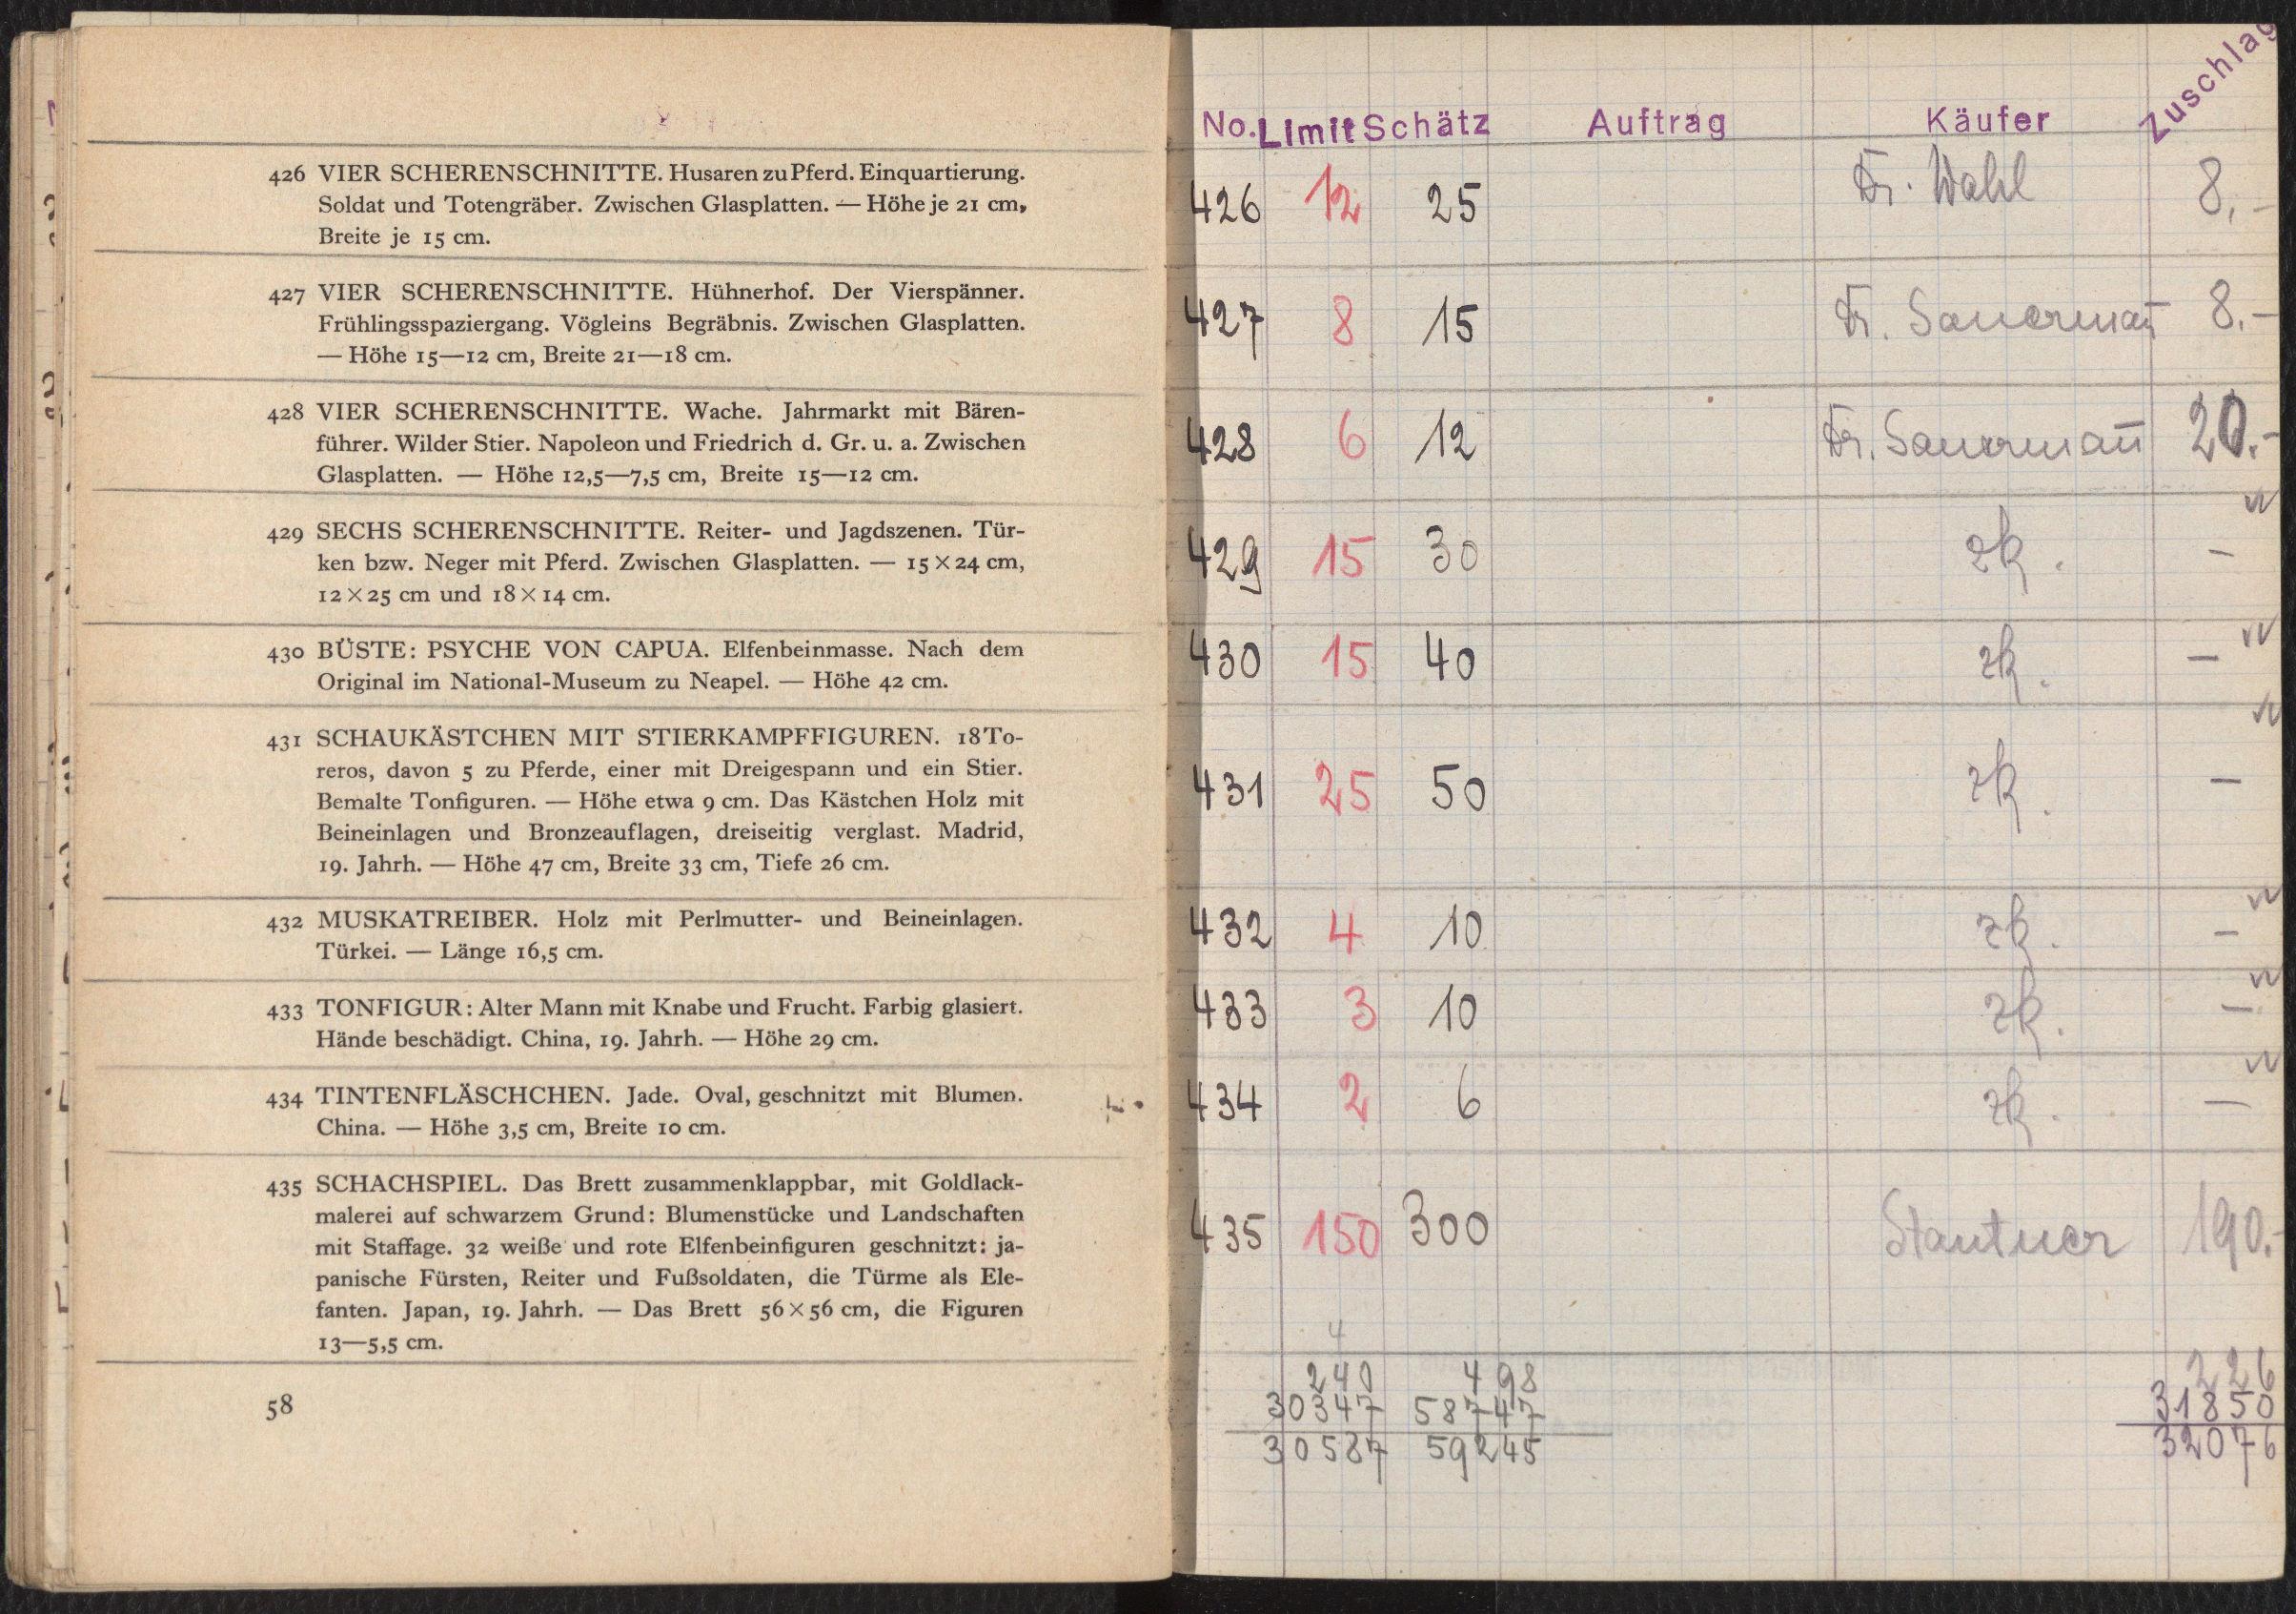 426 VIER SCHERENSCHNITTE. Husaren zu Pferd. Einquartierung.
Soldat und Totengräber. Zwischen Glasplatten. — Höhe je 21 cm,
Breite je 15 cm.
427 VIER SCHERENSCHNITTE. Hühnerhof. Der Vierspänner.
Frühlingsspaziergang. Vögleins Begräbnis. Zwischen Glasplatten.
— Höhe 15—12 cm, Breite 21—18 cm.
428 VIER SCHERENSCHNITTE. Wache. Jahrmarkt mit Bären-
führer. Wilder Stier. Napoleon und Friedrich d. Gr. u. a. Zwischen
Glasplatten. — Höhe 12,5—7,5 cm, Breite 15—12 cm.
429 SECHS SCHERENSCHNITTE. Reiter- und Jagdszenen. Tür-
ken bzw. Neger mit Pferd. Zwischen Glasplatten. — 15×24 cm,
12×25 cm und 18×14 cm.
430 BÜSTE: PSYCHE VON CAPUA. Elfenbeinmasse. Nach dem
Original im National-Museum zu Neapel. — Höhe 42 cm.
431 SCHAUKÄSTCHEN MIT STIERKAMPFFIGUREN. 18 To-
reros, davon 5 zu Pferde, einer mit Dreigespann und ein Stier.
Bemalte Tonfiguren. — Höhe etwa 9 cm. Das Kästchen Holz mit
Beineinlagen und Bronzeauflagen, dreiseitig verglast. Madrid,
19. Jahrh. — Höhe 47 cm, Breite 33 cm, Tiefe 26 cm.
432 MUSKATREIBER. Holz mit Perlmutter- und Beineinlagen.
Türkei. — Länge 16,5 cm.
433 TONFIGUR: Alter Mann mit Knabe und Frucht. Farbig glasiert.
Hände beschädigt. China, 19. Jahrh. — Höhe 29 cm.
434 TINTENFLÄSCHCHEN. Jade. Oval, geschnitzt mit Blumen.
China. — Höhe 3,5 cm, Breite 10 cm.
435 SCHACHSPIEL. Das Brett zusammenklappbar, mit Goldlack-
malerei auf schwarzem Grund: Blumenstücke und Landschaften
mit Staffage. 32 weiße und rote Elfenbeinfiguren geschnitzt: ja-
panische Fürsten, Reiter und Fußsoldaten, die Türme als Ele-
fanten. Japan, 19. Jahrh. — Das Brett 56×56 cm, die Figuren
13—5,5 cm.
58
No. Limit Schätz Auftrag Käufer Zuschlag
426 12 25 Dr. Wahl 8.-
427 8 15 Dr. Sauerman̄ 8.-
428 6 12 Dr. Sauerman̄ 20.-
429 15 30 zk. —
430 15 40 zk. —
431 25 50 zk. —
432 4 10 zk. —
433 3 10 zk. —
434 2 6 zk. —
435 150 300 Stautner 190.-
4
240 498 226
30347 58747 31850
30587 59245 32076